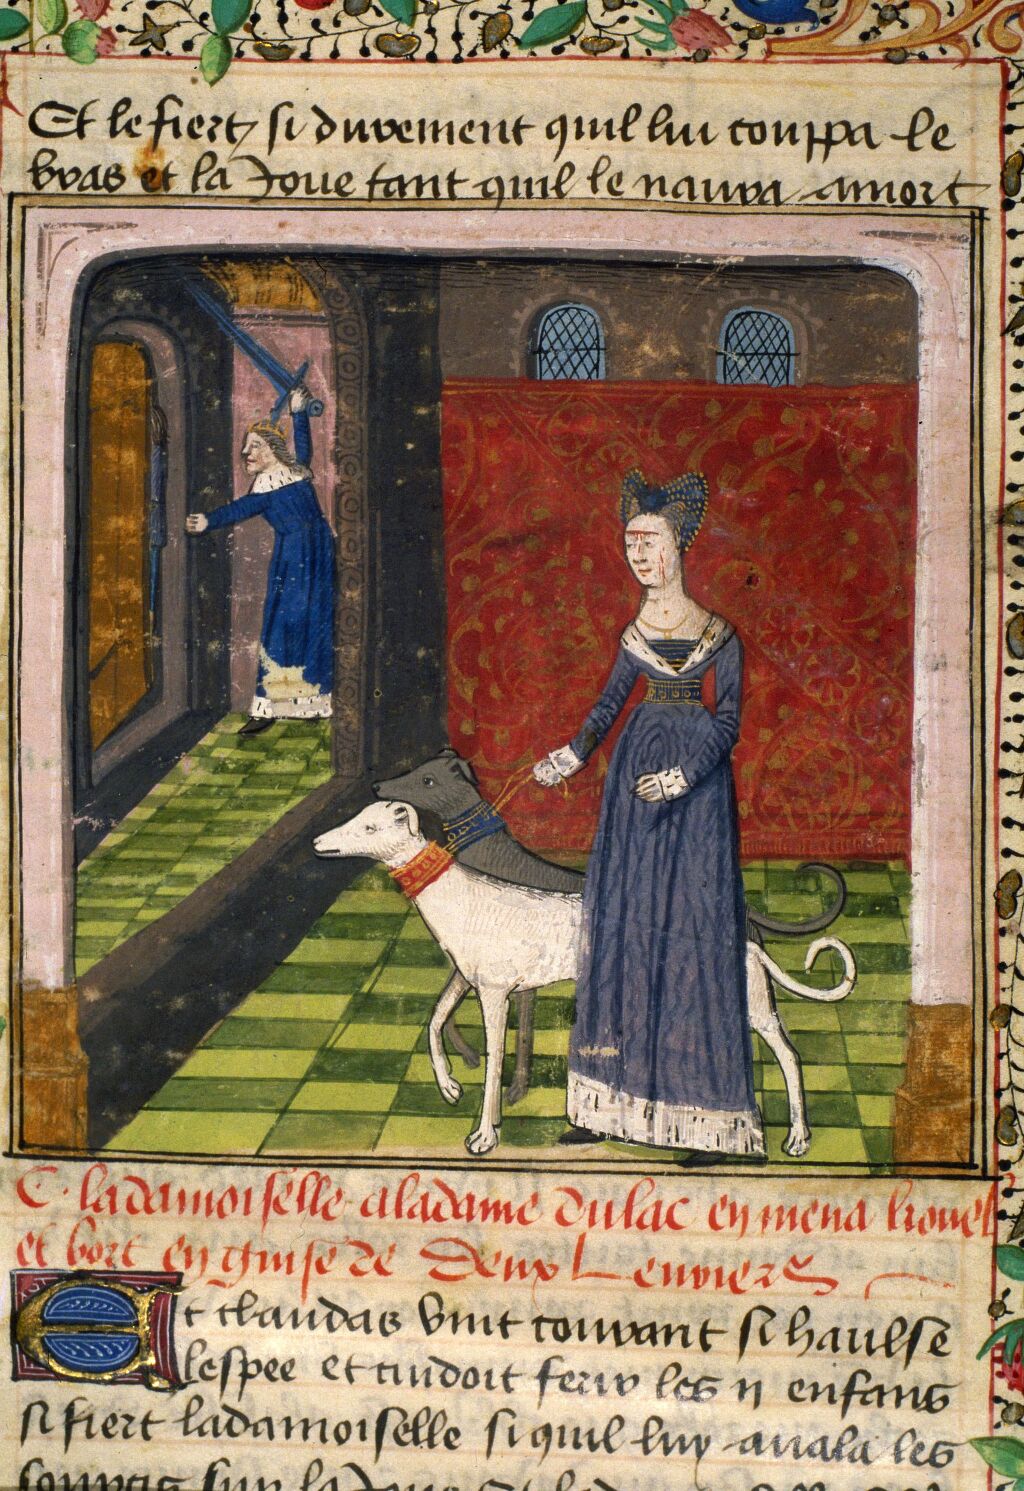 Et le fiert si durement quil lui couppa le
bras et la Joue tant quil le navra a mort
C. la damoiselle a la dame du lac en mena lionel
et bort en guise de deux Levriers
Et claudas vint courant si haulse
lespee et cuidoit ferir les ii enfans
si fiert la damoiselle si quil luy avala les
sourcis sur la Joue et le